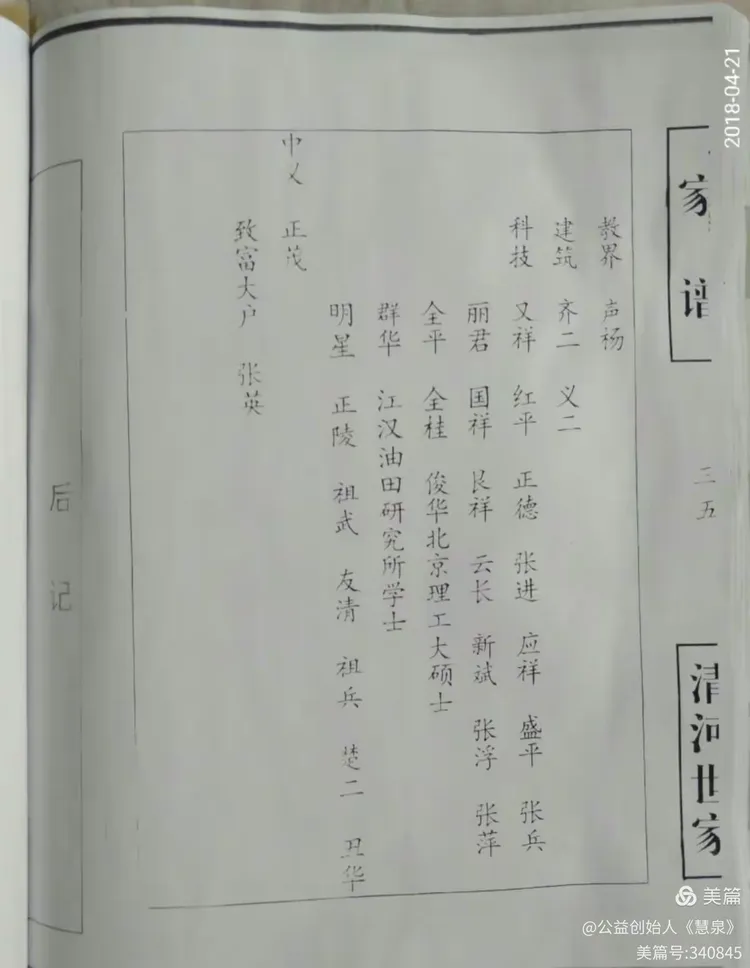 家谱
三五
清河世家
教界 声杨
建筑 齐二 义二
科技 又祥 红平 正德 张进 应祥 盛平 张兵
丽君 国祥 艮祥 云长 新斌 张浮 张萍
全平 全桂 俊华北京理工大硕士
群华 江汉油田研究所学士
明星 正陵 祖武 友清 祖兵 楚二 丑华
中义 正茂
致富大户 张英
后记
2018-04-21
美篇
@公益创始人《慧泉》
美篇号:340845